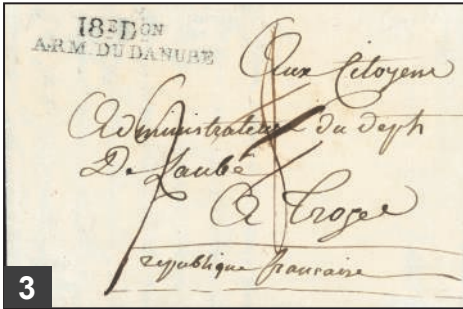 18E DON
ARM. DU DANUBE
Aux Citoyens
Administrateurs du dept
De Laube
A Troyes
republique francaise
3